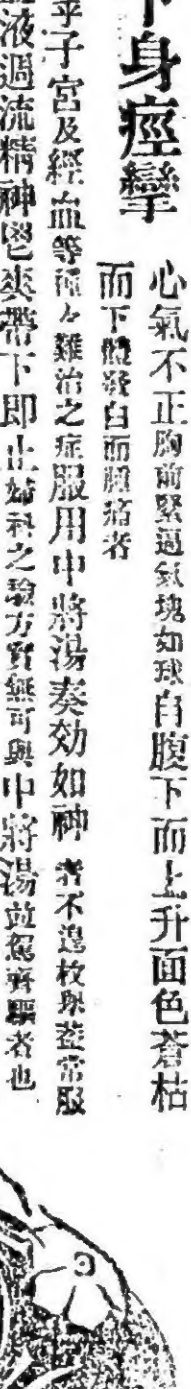 下身痙攣
心氣不正胸前緊逼氣塊如球自腹下而上升面色蒼枯
而下體發白而腫痛者
乎子宮及經血等種々難治之症服用中將湯奏効如神者不遑枚擧益常服
液週流精神爽帶下即止婦科之驗方實無可與中將湯並駕齊驅者也